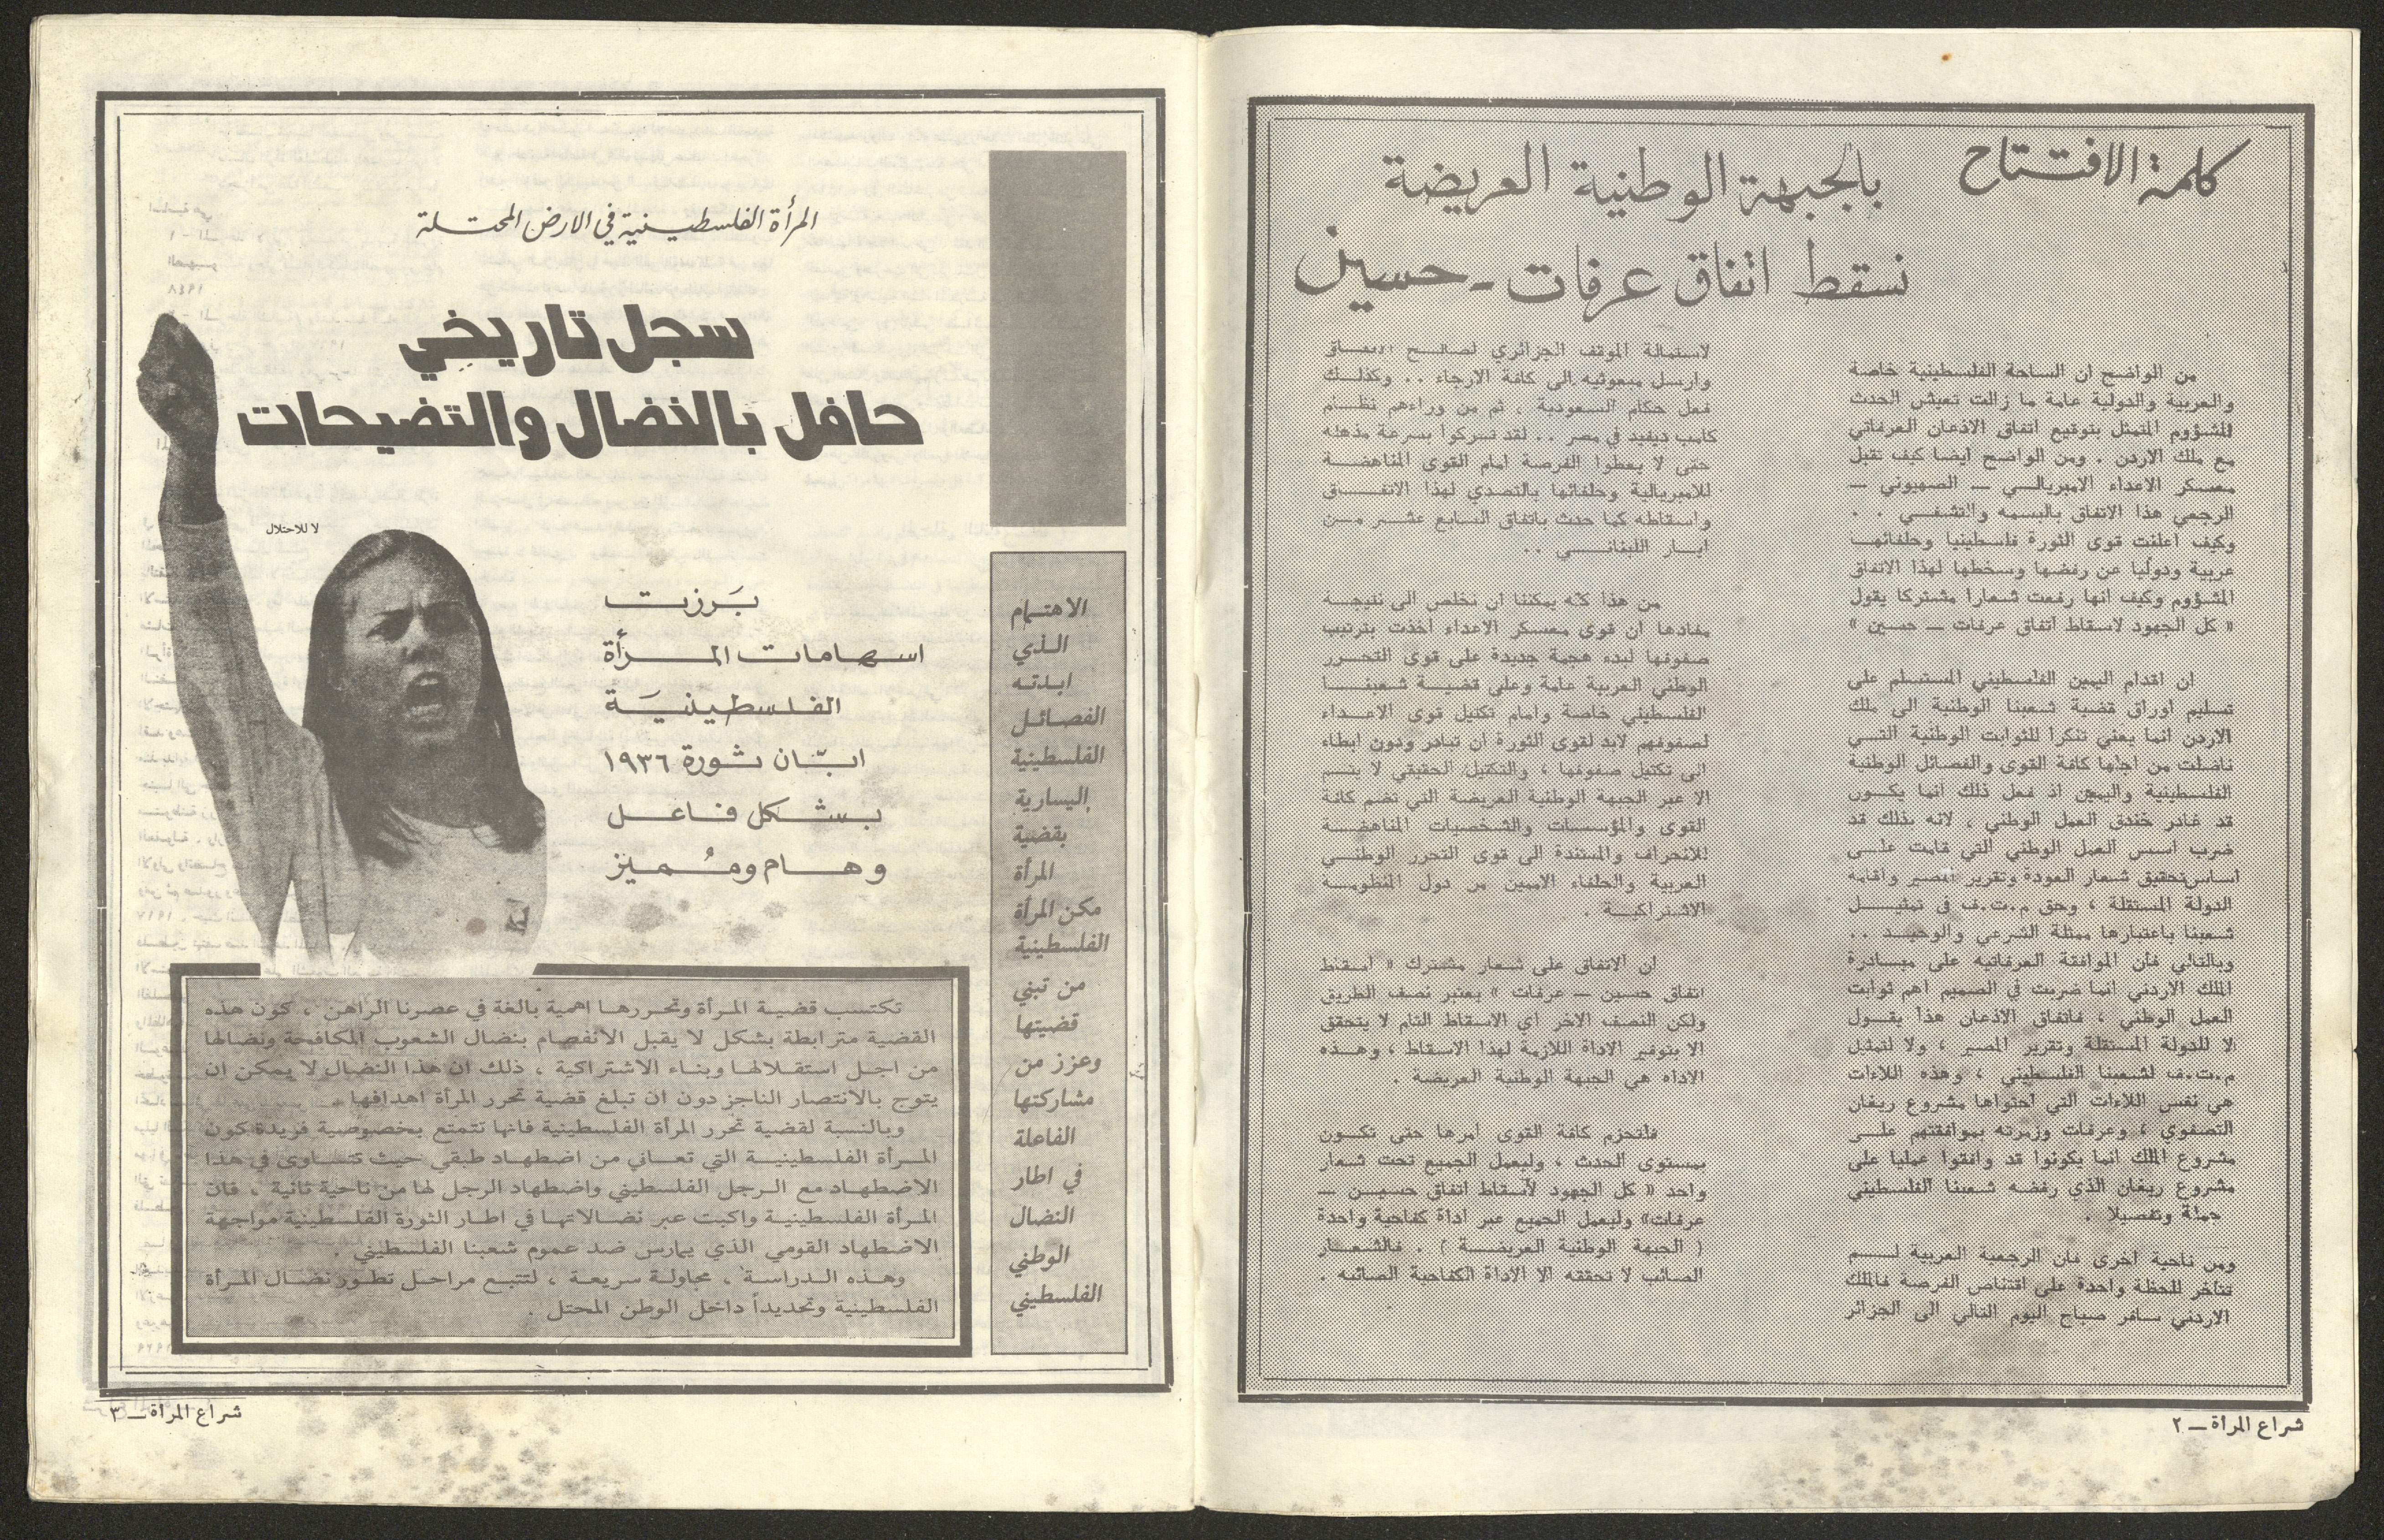 كلمة الافتتاح
بالجبهة الوطنية العريضة
نسقط اتفاق عرفات - حسين
من الواضح ان الساحة الفلسطينية خاصة
والعربية والدولية عامة ما زالت تعيش الحدث
المشؤوم المتمثل بتوقيع اتفاق الاذعان العرفاتي
مع ملك الاردن . ومن الواضح ايضا كيف تقبل
معسكر الاعداء الامبريالي — الصهيوني —
الرجعي هذا الاتفاق بالبسمه والتشفي . .
وكيف اعلنت قوى الثورة فلسطينيا وحلفائها
عربية ودوليا عن رفضها وسخطها لهذا الاتفاق
المشؤوم وكيف انها رفعت شعارا مشتركا يقول
« كل الجهود لاسقاط اتفاق عرفات — حسين »
ان اقدام اليمين الفلسطيني المستسلم على
تسليم اوراق قضية شعبنا الوطنية الى ملك
الاردن انما يعني تنكرا للثوابت الوطنية التي
ناضلت من اجلها كافة القوى والفصائل الوطنية
الفلسطينية واليمين اذ فعل ذلك انما يكون
قد غادر خندق العمل الوطني ، لانه بذلك قد
ضرب اسس العمل الوطني التي قامت على
اساس تحقيق شعار العودة وتقرير المصير واقامه
الدولة المستقلة ، وحق م.ت.ف في تمثيل
شعبنا باعتبارها ممثلة الشرعي والوحيد ..
وبالتالي فأن الموافقة العرفاتيه على مبادرة
الملك الاردني انما ضربت في الصميم اهم ثوابت
العمل الوطني ، فاتفاق الاذعان هذا يقول
لا للدولة المستقلة وتقرير المصير ، ولا لتمثيل
م.ت.ف لشعبنا الفلسطيني ، وهذه اللاءات
هي نفس اللاءات التي احتواها مشروع ريغان
التصفوي ، وعرفات وزمرته بموافقتهم على
مشروع الملك انما يكونوا قد وافقوا عمليا على
مشروع ريغان الذي رفضه شعبنا الفلسطيني
جملة وتفصيلا .
ومن ناحية اخرى فان الرجعية العربية لم
تتأخر للحظة واحدة على اقتناص الفرصة فالملك
الاردني سافر صباح اليوم التالي الى الجزائر
لاستمالة الموقف الجزائري لصالح الاتفاق
وارسل مبعوثيه الى كافة الارجاء .. وكذلك
فعل حكام السعودية ، ثم من وراءهم نظام
كامب ديفيد في مصر .. لقد تحركوا بسرعة مذهلة
حتى لا يعطوا الفرصة امام القوى المناهضة
للامبريالية وحلفائها بالتصدي لهذا الاتفاق
واسقاطه كما حدث باتفاق السابع عشر من
ايار اللبناني ..
من هذا كله يمكننا ان نخلص الى نتيجة
مفادها ان قوى معسكر الاعداء اخذت بترتيب
صفوفها لبدء هجمة جديدة على قوى التحرر
الوطني العربية عامة وعلى قضية شعبنا
الفلسطيني خاصة وامام تكتيل قوى الاعداء
لصفوفهم لابد لقوى الثورة ان تبادر ودون ابطاء
الى تكتيل صفوفها ، والتكتيل الحقيقي لا يتم
الا عبر الجبهة الوطنية العريضة التي تضم كافة
القوى والمؤسسات والشخصيات المناهضة
للانحراف والمستندة الى قوى التحرر الوطني
العربية والحلفاء الامميين من دول المنظومه
الاشتراكية .
ان الاتفاق على شعار مشترك « اسقاط
اتفاق حسين — عرفات » يعتبر نصف الطريق
ولكن النصف الاخر اي الاسقاط التام لا يتحقق
الا بتوفير الاداة اللازمة لهذا الاسقاط ، وهذه
الاداه هي الجبهة الوطنية العريضة .
فلتحزم كافة القوى امرها حتى تكون
بمستوى الحدث ، وليعمل الجميع تحت شعار
واحد « كل الجهود لاسقاط اتفاق حسين —
عرفات» وليعمل الجميع عبر اداة كفاحية واحدة
( الجبهة الوطنية العريضة ) . فالشعار
الصائب لا تحققه الا الاداة الكفاحية الصائبه .
شراع المرأة — ٢
المرأة الفلسطينية في الارض المحتلة
سجل تاريخي
حافل بالنضال والتضيحات
لا للاحتلال
بَرزت
اسهامات المرأة
الفلسطينيَة
ابّان ثورة ١٩٣٦
بشكل فاعل
وهام ومُميز
الاهتمام
الذي
ابدته
الفصائل
الفلسطينية
اليسارية
بقضية
المرأة
مكن المرأة
الفلسطينية
من تبني
قضيتها
وعزز من
مشاركتها
الفاعلة
في اطار
النضال
الوطني
الفلسطيني
تكتسب قضية المرأة وتحررها اهمية بالغة في عصرنا الراهن ، كون هذه
القضية مترابطة بشكل لا يقبل الانفصام بنضال الشعوب المكافحة ونضالها
من اجل استقلالها وبناء الاشتراكية ، ذلك ان هذا النضال لا يمكن ان
يتوج بالانتصار الناجز دون ان تبلغ قضية تحرر المرأة اهدافها
وبالنسبة لقضية تحرر المرأة الفلسطينية فانها تتمتع بخصوصية فريدة كون
المرأة الفلسطينية التي تعاني من اضطهاد طبقي حيث تتساوى في هذا
الاضطهاد مع الرجل الفلسطيني واضطهاد الرجل لها من ناحية ثانية ، فان
المرأة الفلسطينية واكبت عبر نضالاتها في اطار الثورة الفلسطينية مواجهة
الاضطهاد القومي الذي يمارس ضد عموم شعبنا الفلسطيني .
وهذه الدراسة ، محاولة سريعة ، لتتبع مراحل تطور نضال المرأة
الفلسطينية وتحديداً داخل الوطن المحتل .
شراع المرأة — ٣